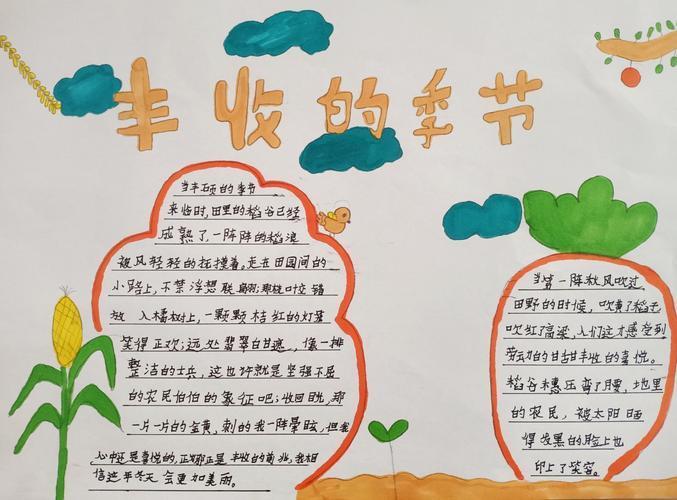 丰收的季节
当丰硕的季节
来临时,田里的稻谷已经
成熟了一阵阵的稻浪
被风轻轻的抚摸着。走在田园间的
小路上,不禁浮想联翩那枝叶交错
放入橘树上,一颗颗桔红的灯笼
笑得正欢;远处翡翠甘遮,像一排
整洁的士兵,这也许就是坚强不屈
的农民伯伯的象征吧;收回目光,那
一片一片的金黄,刺的我一阵晕眩,但我
心中还是喜悦的,正那正是丰收的前兆,我相
信这年冬天会更加美丽。
当第一阵秋风吹过
田野的时候,吹黄了稻子
吹红了高粱,人们这才感受到
劳动的甘甜丰收的喜悦。
稻谷穗压弯了腰,地里
的农民,被太阳晒
得发黑的脸上也
印上了笑容。